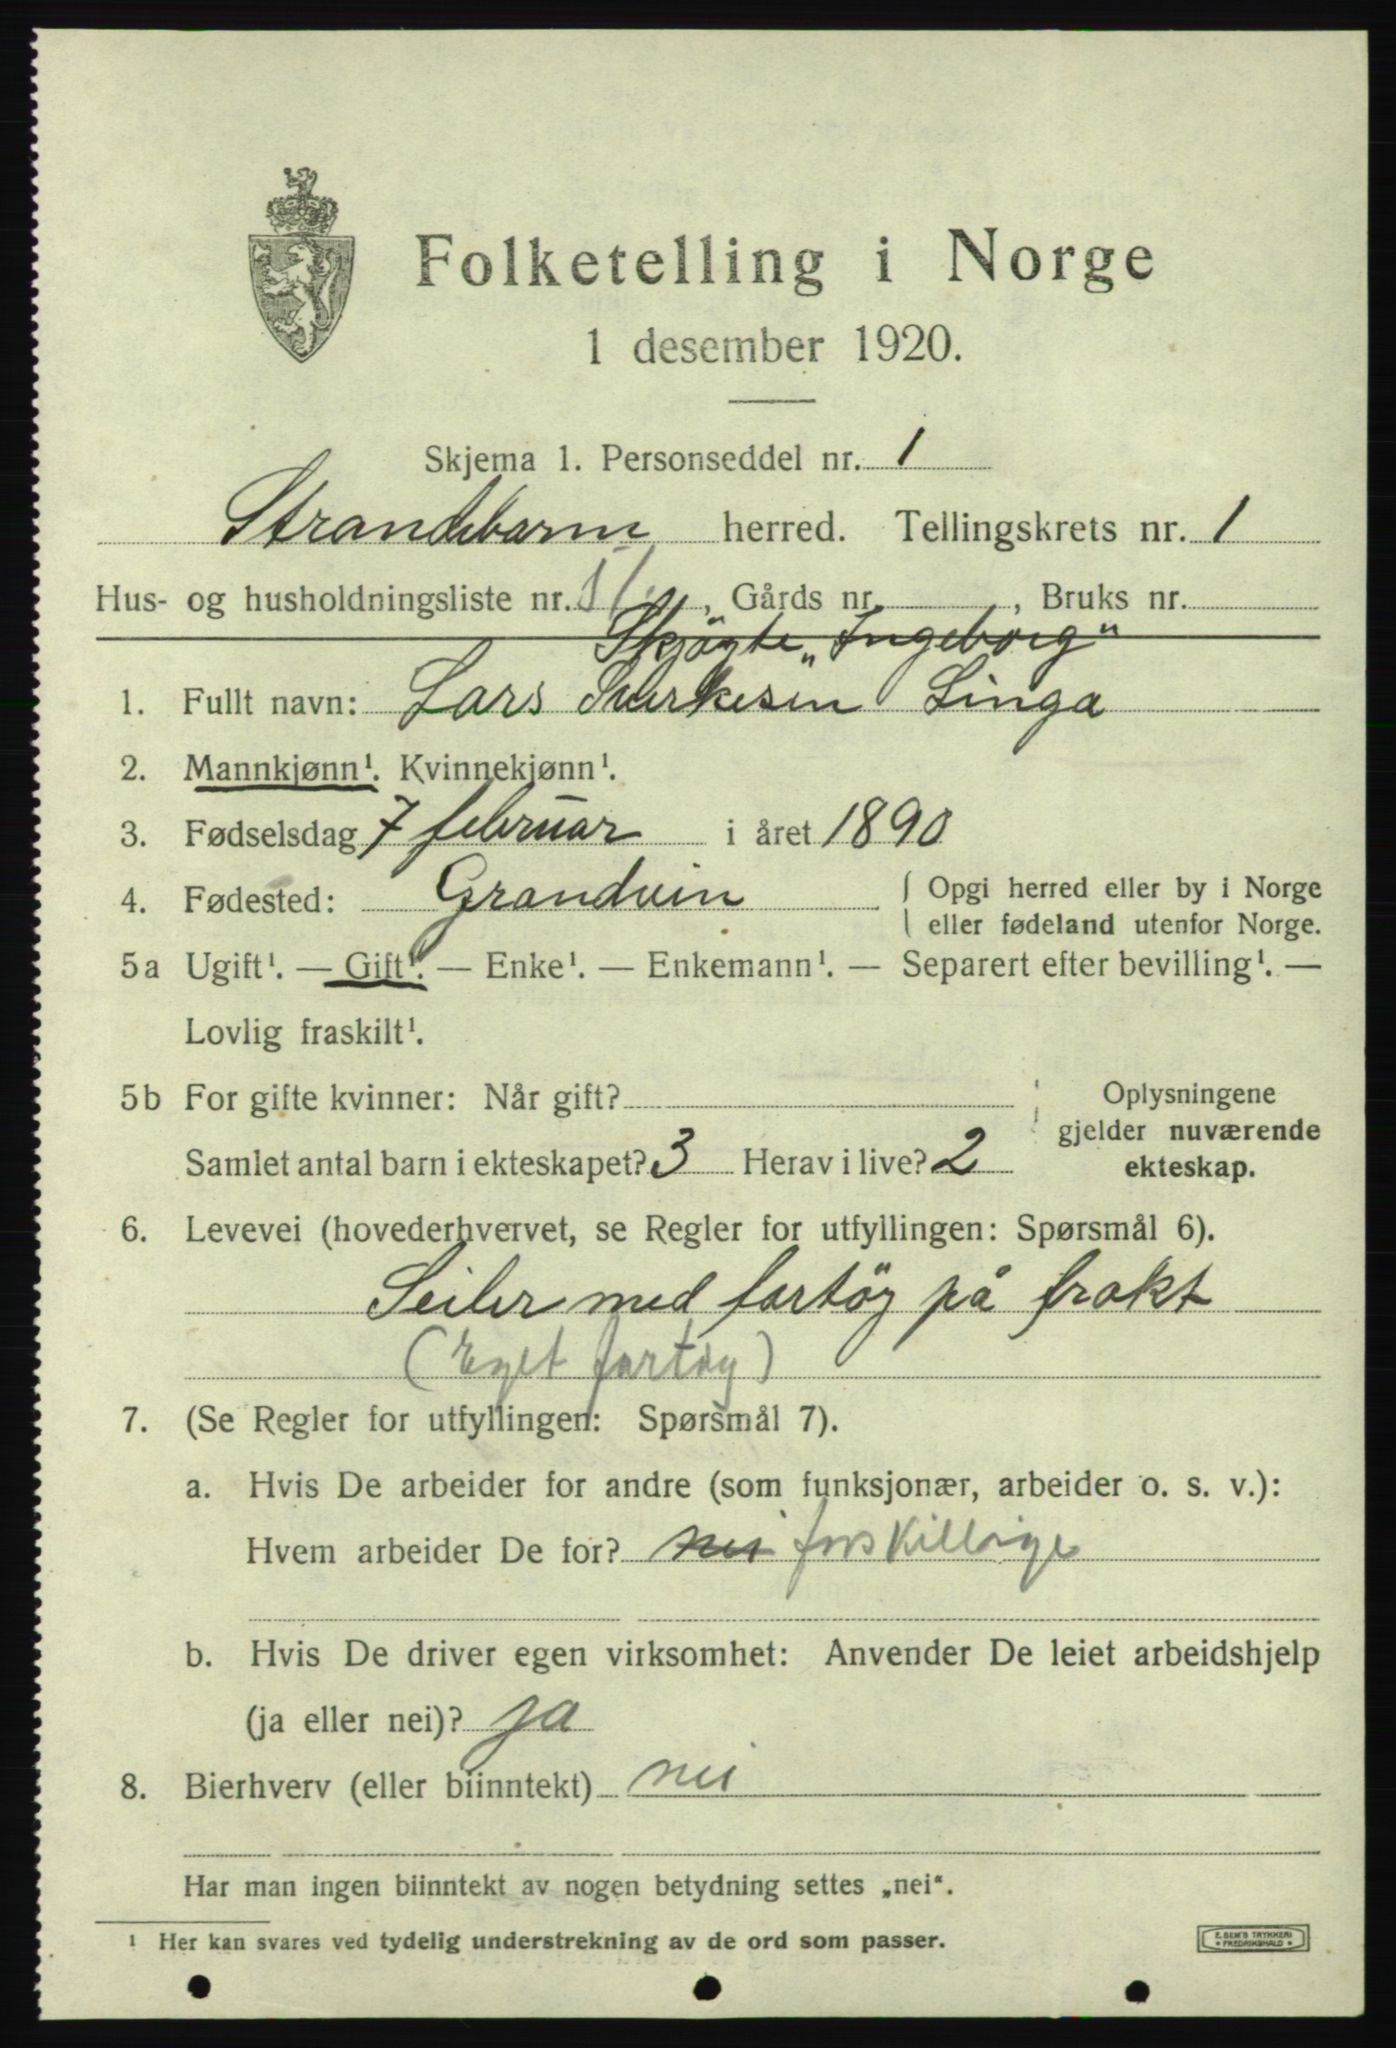 Folketelling i Norge
1 desember 1920.
Skjema 1. Personseddel nr. 1
Strandebarm herred. Tellingskrets nr. 1
Hus- og husholdningsliste nr. , Gårds nr. , Bruks nr.
Skjøgte „Ingeborg"
1. Fullt navn: Lars Sverkesen Linga
2. Mannkjønn¹. Kvinnekjønn¹.
3. Fødselsdag 7 februar i året 1890
4. Fødested: Grandvin { Opgi herred eller by i Norge
eller fødeland utenfor Norge.
5a Ugift¹. — Gift¹. — Enke¹. — Enkemann¹. — Separert efter bevilling¹. —
Lovlig fraskilt¹.
5b For gifte kvinner: Når gift? Oplysningene
gjelder nuværende
Samlet antal barn i ekteskapet? 3 Herav i live? 2 ekteskap.
6. Levevei (hovederhvervet, se Regler for utfyllingen: Spørsmål 6).
Seiler med fartöy på frakt
(Eget fartøy)
7. (Se Regler for utfyllingen: Spørsmål 7).
a. Hvis De arbeider for andre (som funksjonær, arbeider o. s. v.):
Hvem arbeider De for? nei forskillige
b. Hvis De driver egen virksomhet: Anvender De leiet arbeidshjelp
(ja eller nei)? ja
8. Bierhverv (eller biinntekt) nei
Har man ingen biinntekt av nogen betydning settes „nei".
¹ Her kan svares ved tydelig understrekning av de ord som passer.
E. SEM'S TRYKKERI
* FREDRIKSHALD *